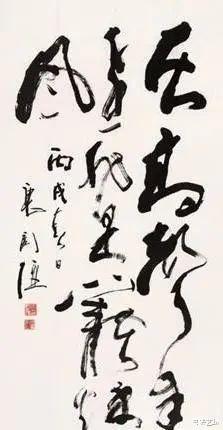 居高聲自
遠非是藉秋
风
丙戌春日